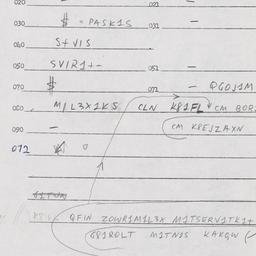 020 021
030 $ = PASK1S 031 —
040 S+VIS
050 SVIR1+- 051 —
070 $ 071 — QGOJ1M
080 M/L3X1KS CLN K81FL CM 80R
090 — CM K8EJZAXN
072
QFIN ZOWR1M1L3X M1TSERV1TK1+
681ROLT M1TN1S KAKQW